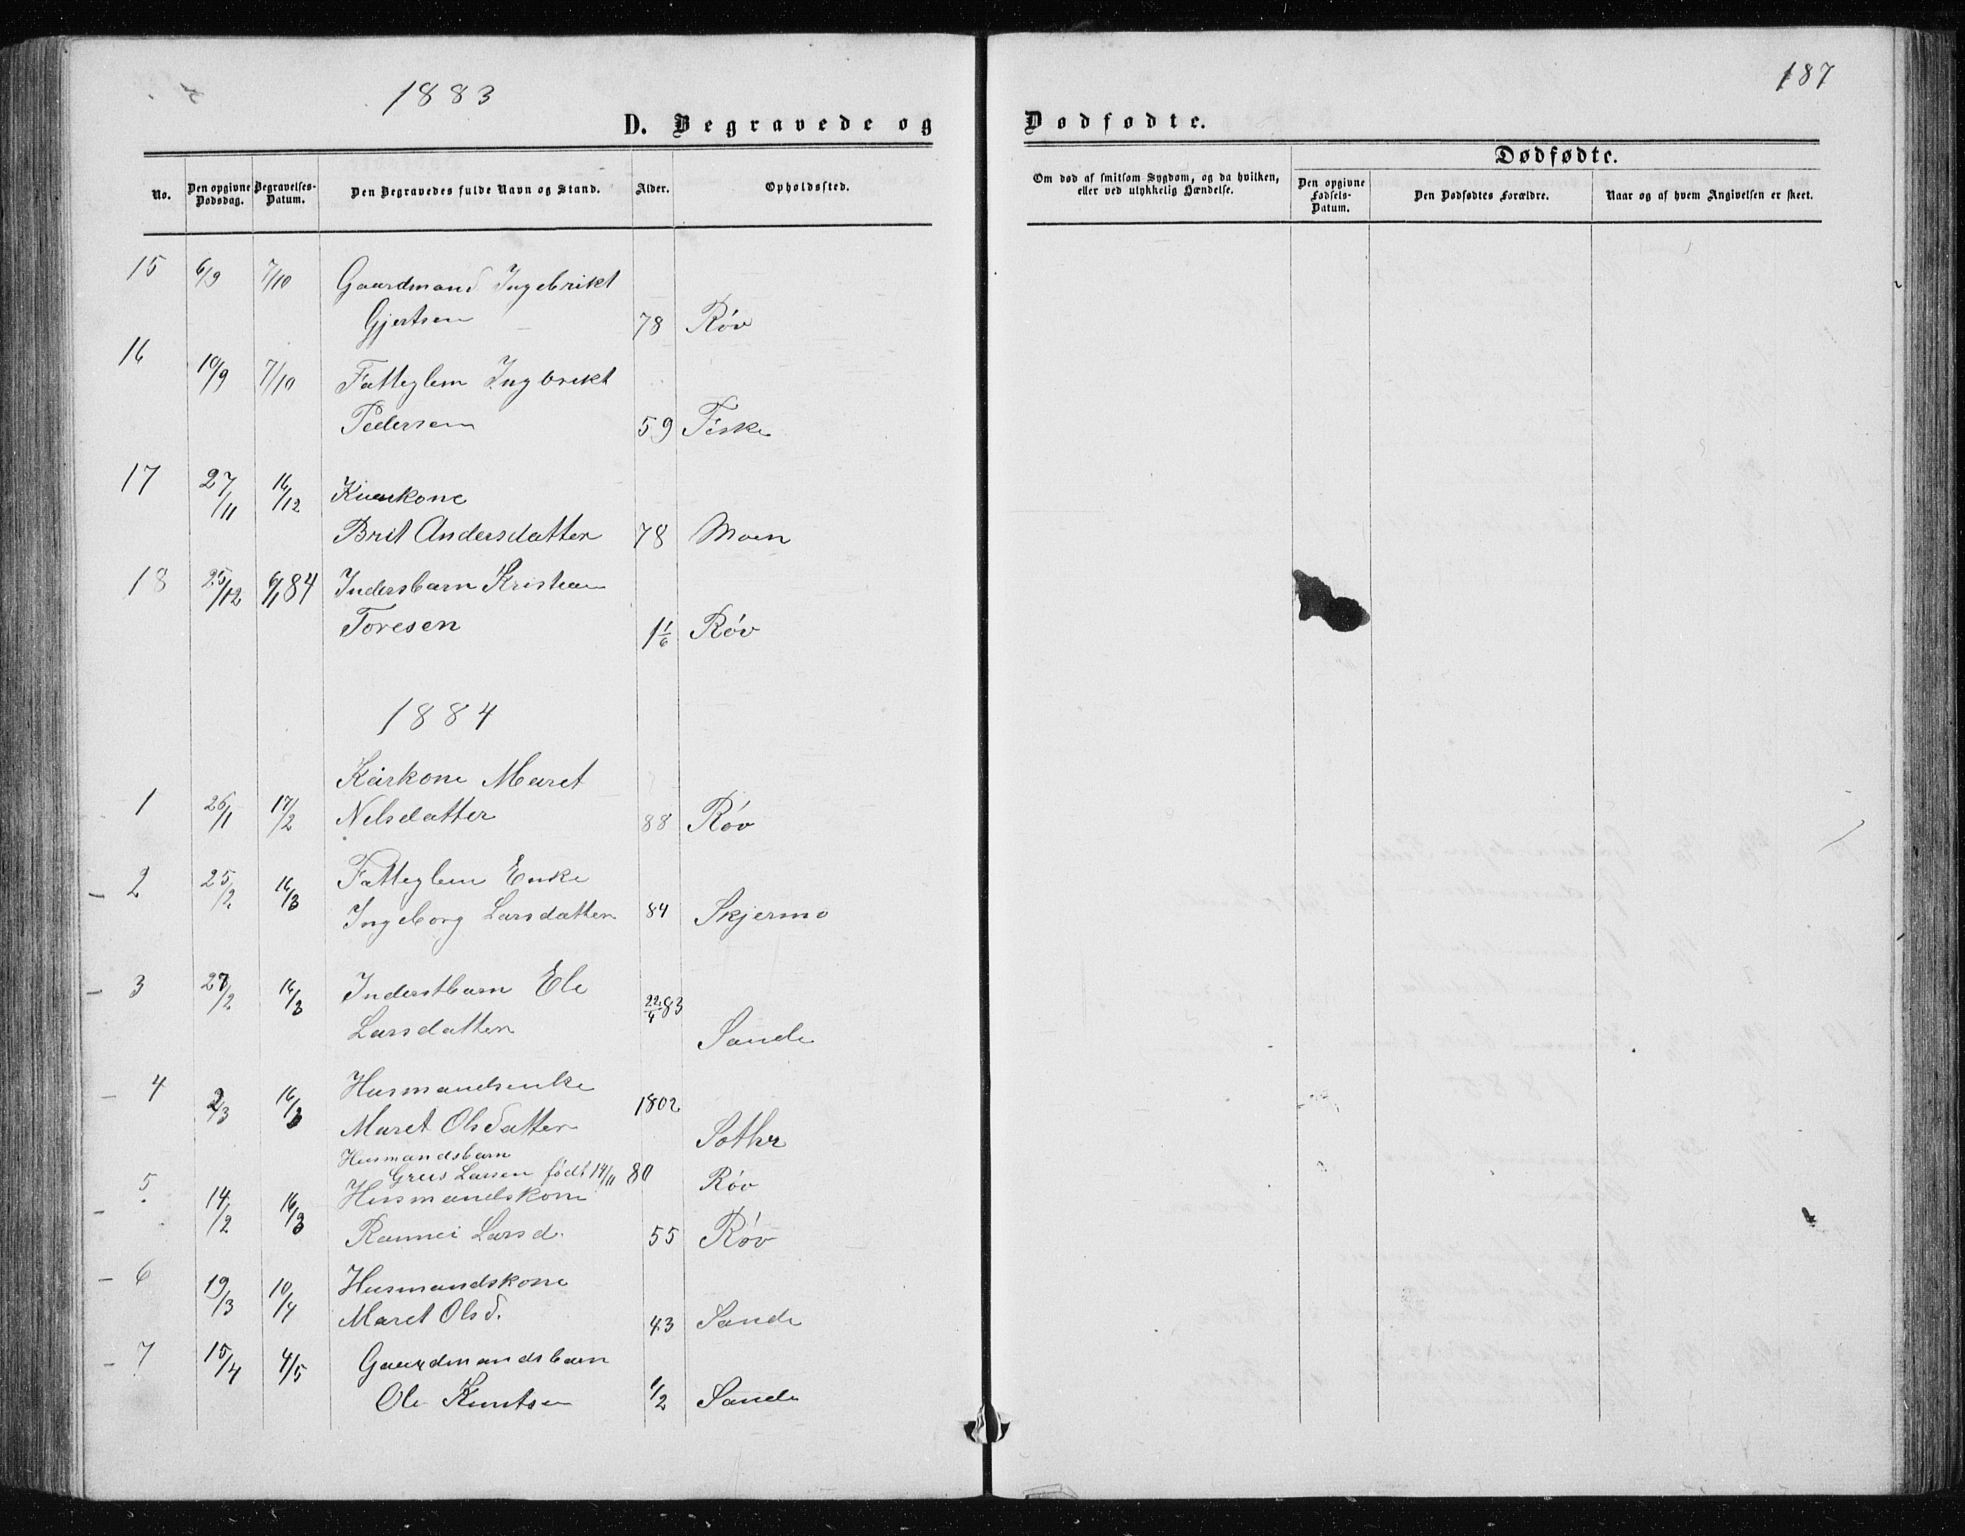 1883
187
D. Begravede og
Dødfødte.
No.
Den opgivne Dødsdag.
Begravelses-Datum.
Den Begravedes fulde Navn og Stand.
Alder.
Opholdssted.
Om død af smitsom Sygdom, og da hvilken,
eller ved ulykkelig Hændelse.
Dødfødte.
Den opgivne Fødsels-Datum.
Den Dødfødtes Forældre.
Naar og af hvem Angivelsen er skeet.
15 6/9 7/10 Gaardmand Ingebrikt
Gjertsen 78 Røv
16 10/9 7/10 Fatteglem Ingbrikt
Pedersen 59 Fiske
17 27/11 16/12 Kaarkone
Brit Andersdatter 78 Moen
18 25/12 6/1 84 Indersbarn Kristian
Toresen 1 1/6 Røv
1884
Kårkone Maret
1 26/1 17/2 Nelsdatter 88 Røv
2 25/2 16/3 Fatteglem Enke
Ingeborg Larsdatter 84 Skjermo
3 27/2 16/3 Inderstbarn Ele
Larsdatter 22/4 83 Sande
4 2/3 16/3 Husmandsenke
Maret Olsdatter 1802
Husmandsbarn
Larsen født 14/11 80 Røv
5 14/2 16/3 Husmandskone
Rannei Larsd. 55 Røv
6 19/3 10/4 Husmandskone
Maret Olsd. 43 Sande
7 15/4 4/5 Gaardmandsbarn
Ole Knutsen 1/2 Sande